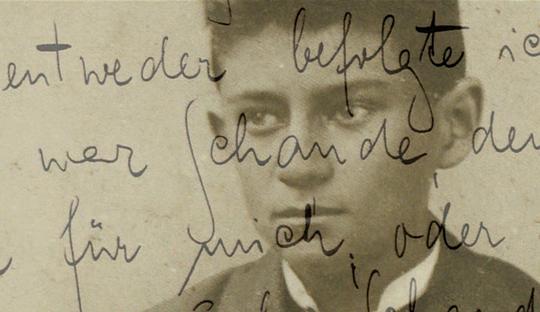 entweder befolgte ic
war Schande, den
für mich, oder